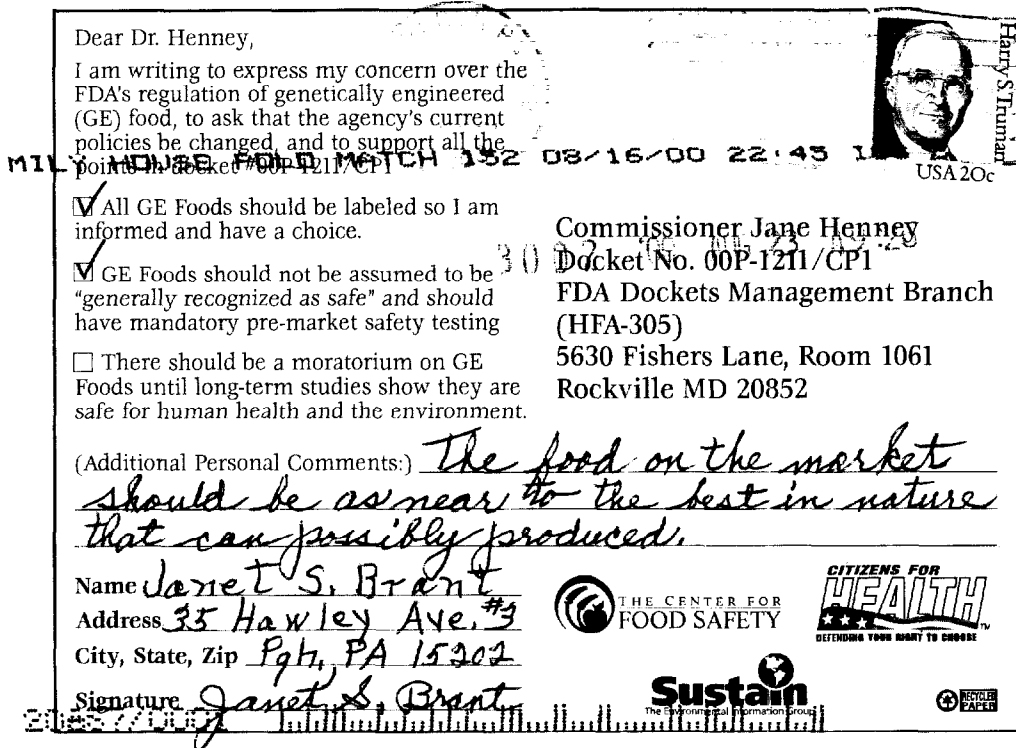 Dear Dr. Henney,
I am writing to express my concern over the
FDA's regulation of genetically engineered
(GE) food, to ask that the agency's current
policies be changed, and to support all the
points in docket #00P-1211/CP1
MILY HOUSE FOLD MATCH 152 08/16/00 22:45
All GE Foods should be labeled so I am
informed and have a choice.
GE Foods should not be assumed to be
"generally recognized as safe" and should
have mandatory pre-market safety testing
There should be a moratorium on GE
Foods until long-term studies show they are
safe for human health and the environment.
Harry S. Truman
USA 20c
Commissioner Jane Henney
Docket No. 00P-1211/CP1
FDA Dockets Management Branch
(HFA-305)
5630 Fishers Lane, Room 1061
Rockville MD 20852
(Additional Personal Comments:) The food on the market
should be as near to the best in nature
that can possibly produced.
Name Janet S. Brant
Address 35 Hawley Ave. #3
City, State, Zip Pgh, PA 15202
Signature Janet S. Brant
THE CENTER FOR
FOOD SAFETY
CITIZENS FOR
HEALTH
TM
DEFENDING YOUR RIGHT TO CHOOSE
Sustain
The Environmental Information Group
RECYCLED
PAPER